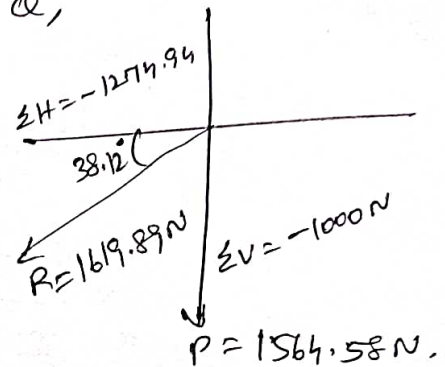 Q,
ΣH = -1274.94
38.12°
R = 1619.89 N
ΣV = -1000 N
P = 1564.58 N.